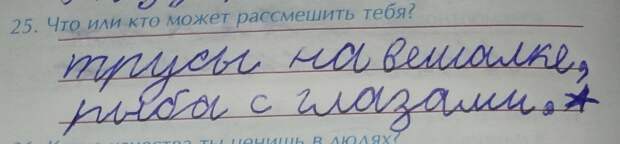 25. Что или кто может рассмешить тебя?
трусы на вешалке,
рыба с глазами.
ты ценишь в людях?